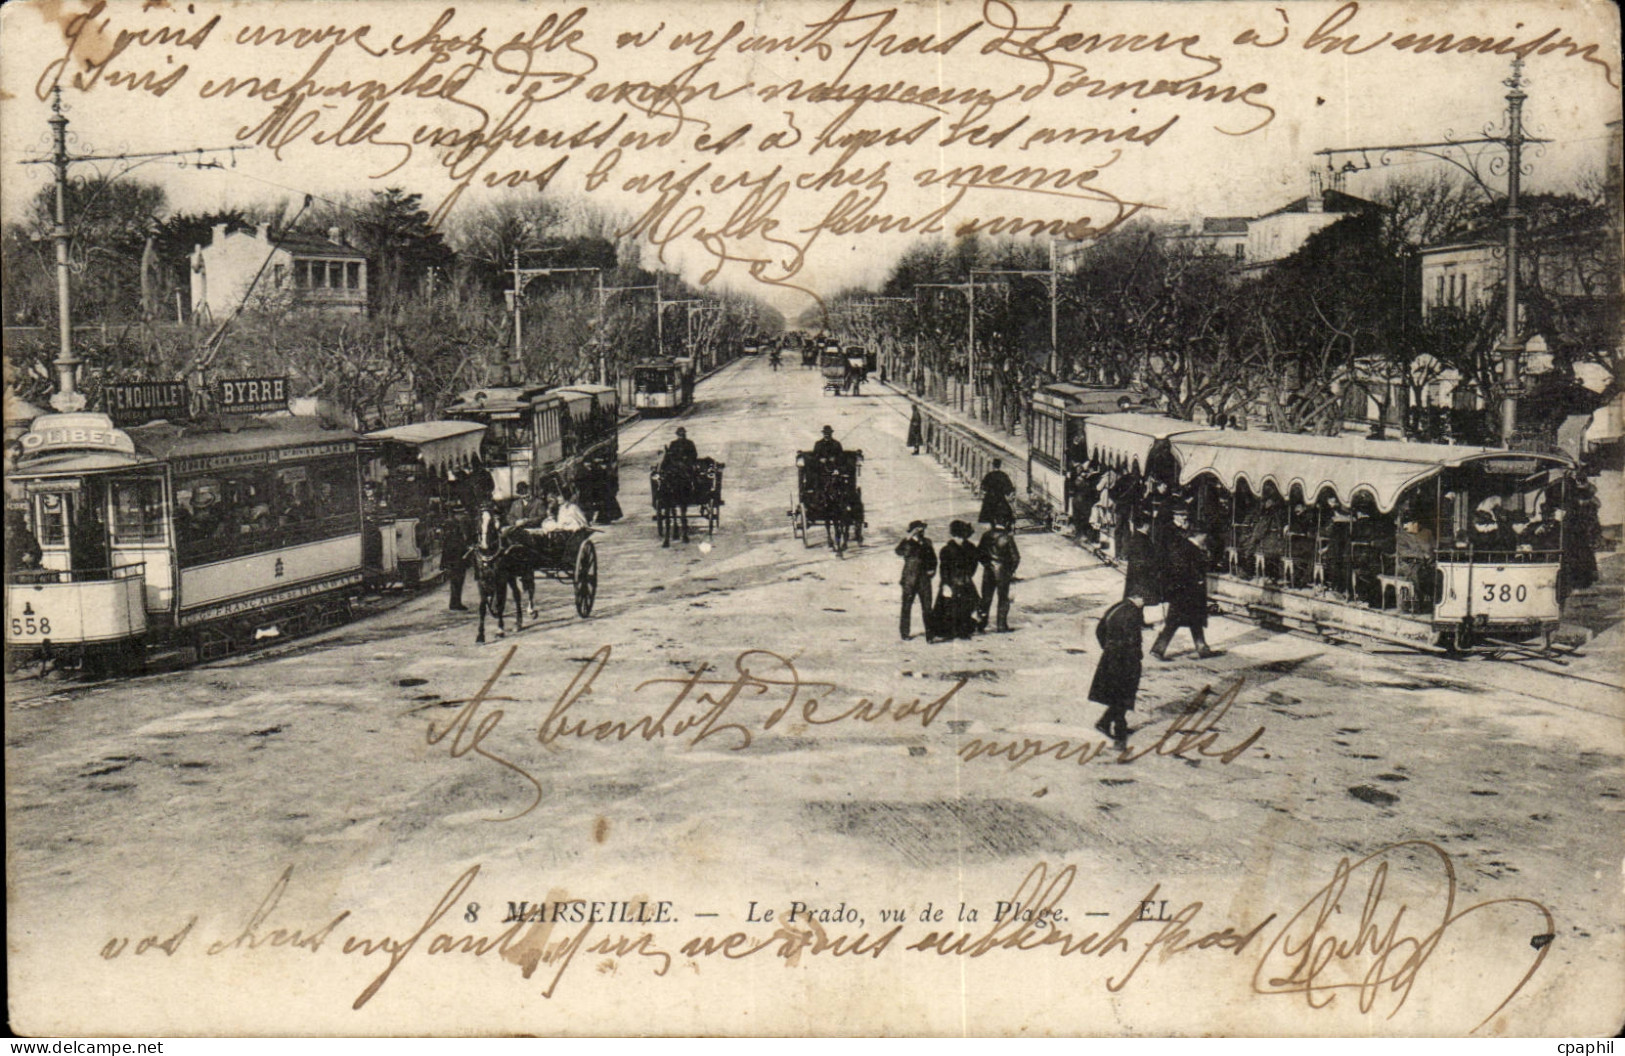 J'écris encore chez elle n'ayant pas d'encre à la maison
Suis enchantée de mon nouveau domaine
Mille embrassades à tous les amis
Gros baisers chez mémé
Mille
FENOUILLET
BYRRH
OLIBET
558
380
FRANÇAISE DE TRAMWAYS
A bientôt de vos
nouvelles.
8 MARSEILLE. — Le Prado, vu de la Plage. — EL
vos chers enfants qui ne vous oublient pas
cpaphil